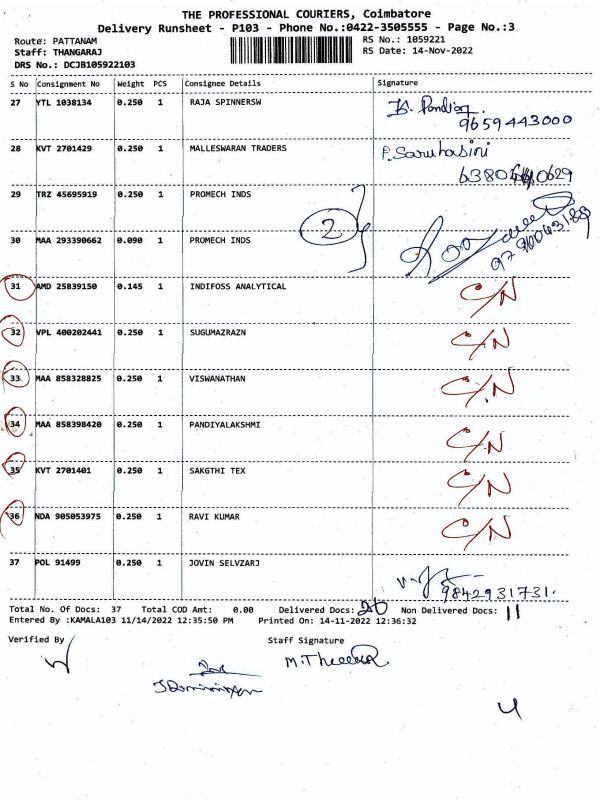 THE PROFESSIONAL COURIERS, Coimbatore
Delivery Runsheet - P103 - Phone No.:0422-3505555 - Page No.:3
Route: PATTANAM
RS No.: 1059221
Staff: THANGARAJ
RS Date: 14-Nov-2022
DRS No.: DCJB105922103
S No Consignment No Weight PCS Consignee Details Signature
27 YTL 1038134 0.250 1 RAJA SPINNERSW
9659443000
28 KVT 2701429 0.250 1 MALLESWARAN TRADERS P. Saruhasini
29 TRZ 45695919 0.250 1 PROMECH INDS
2
30 MAA 293390662 0.090 1 PROMECH INDS
31 AMD 25839150 0.145 1 INDIFOSS ANALYTICAL C/N
32 VPL 400202441 0.250 1 SUGUMAZRAZN C/N
33 MAA 858328825 0.250 1 VISWANATHAN C/N
34 MAA 858398420 0.250 1 PANDIYALAKSHMI C/N
35 KVT 2701401 0.250 1 SAKGTHI TEX C/N
36 NDA 905053975 0.250 1 RAVI KUMAR C/N
37 POL 91499 0.250 1 JOVIN SELVZARJ
9842931731.
Total No. Of Docs: 37 Total COD Amt: 0.00 Delivered Docs: 26 Non Delivered Docs: 11
Entered By :KAMALA103 11/14/2022 12:35:50 PM Printed On: 14-11-2022 12:36:32
Verified By Staff Signature